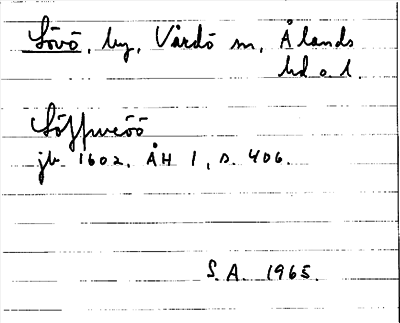 Lövö, by, Vårdö sn, Ålands
hd o. l.
Löffweöö
jb 1602. ÅH 1, s. 406.
S. A. 1965.